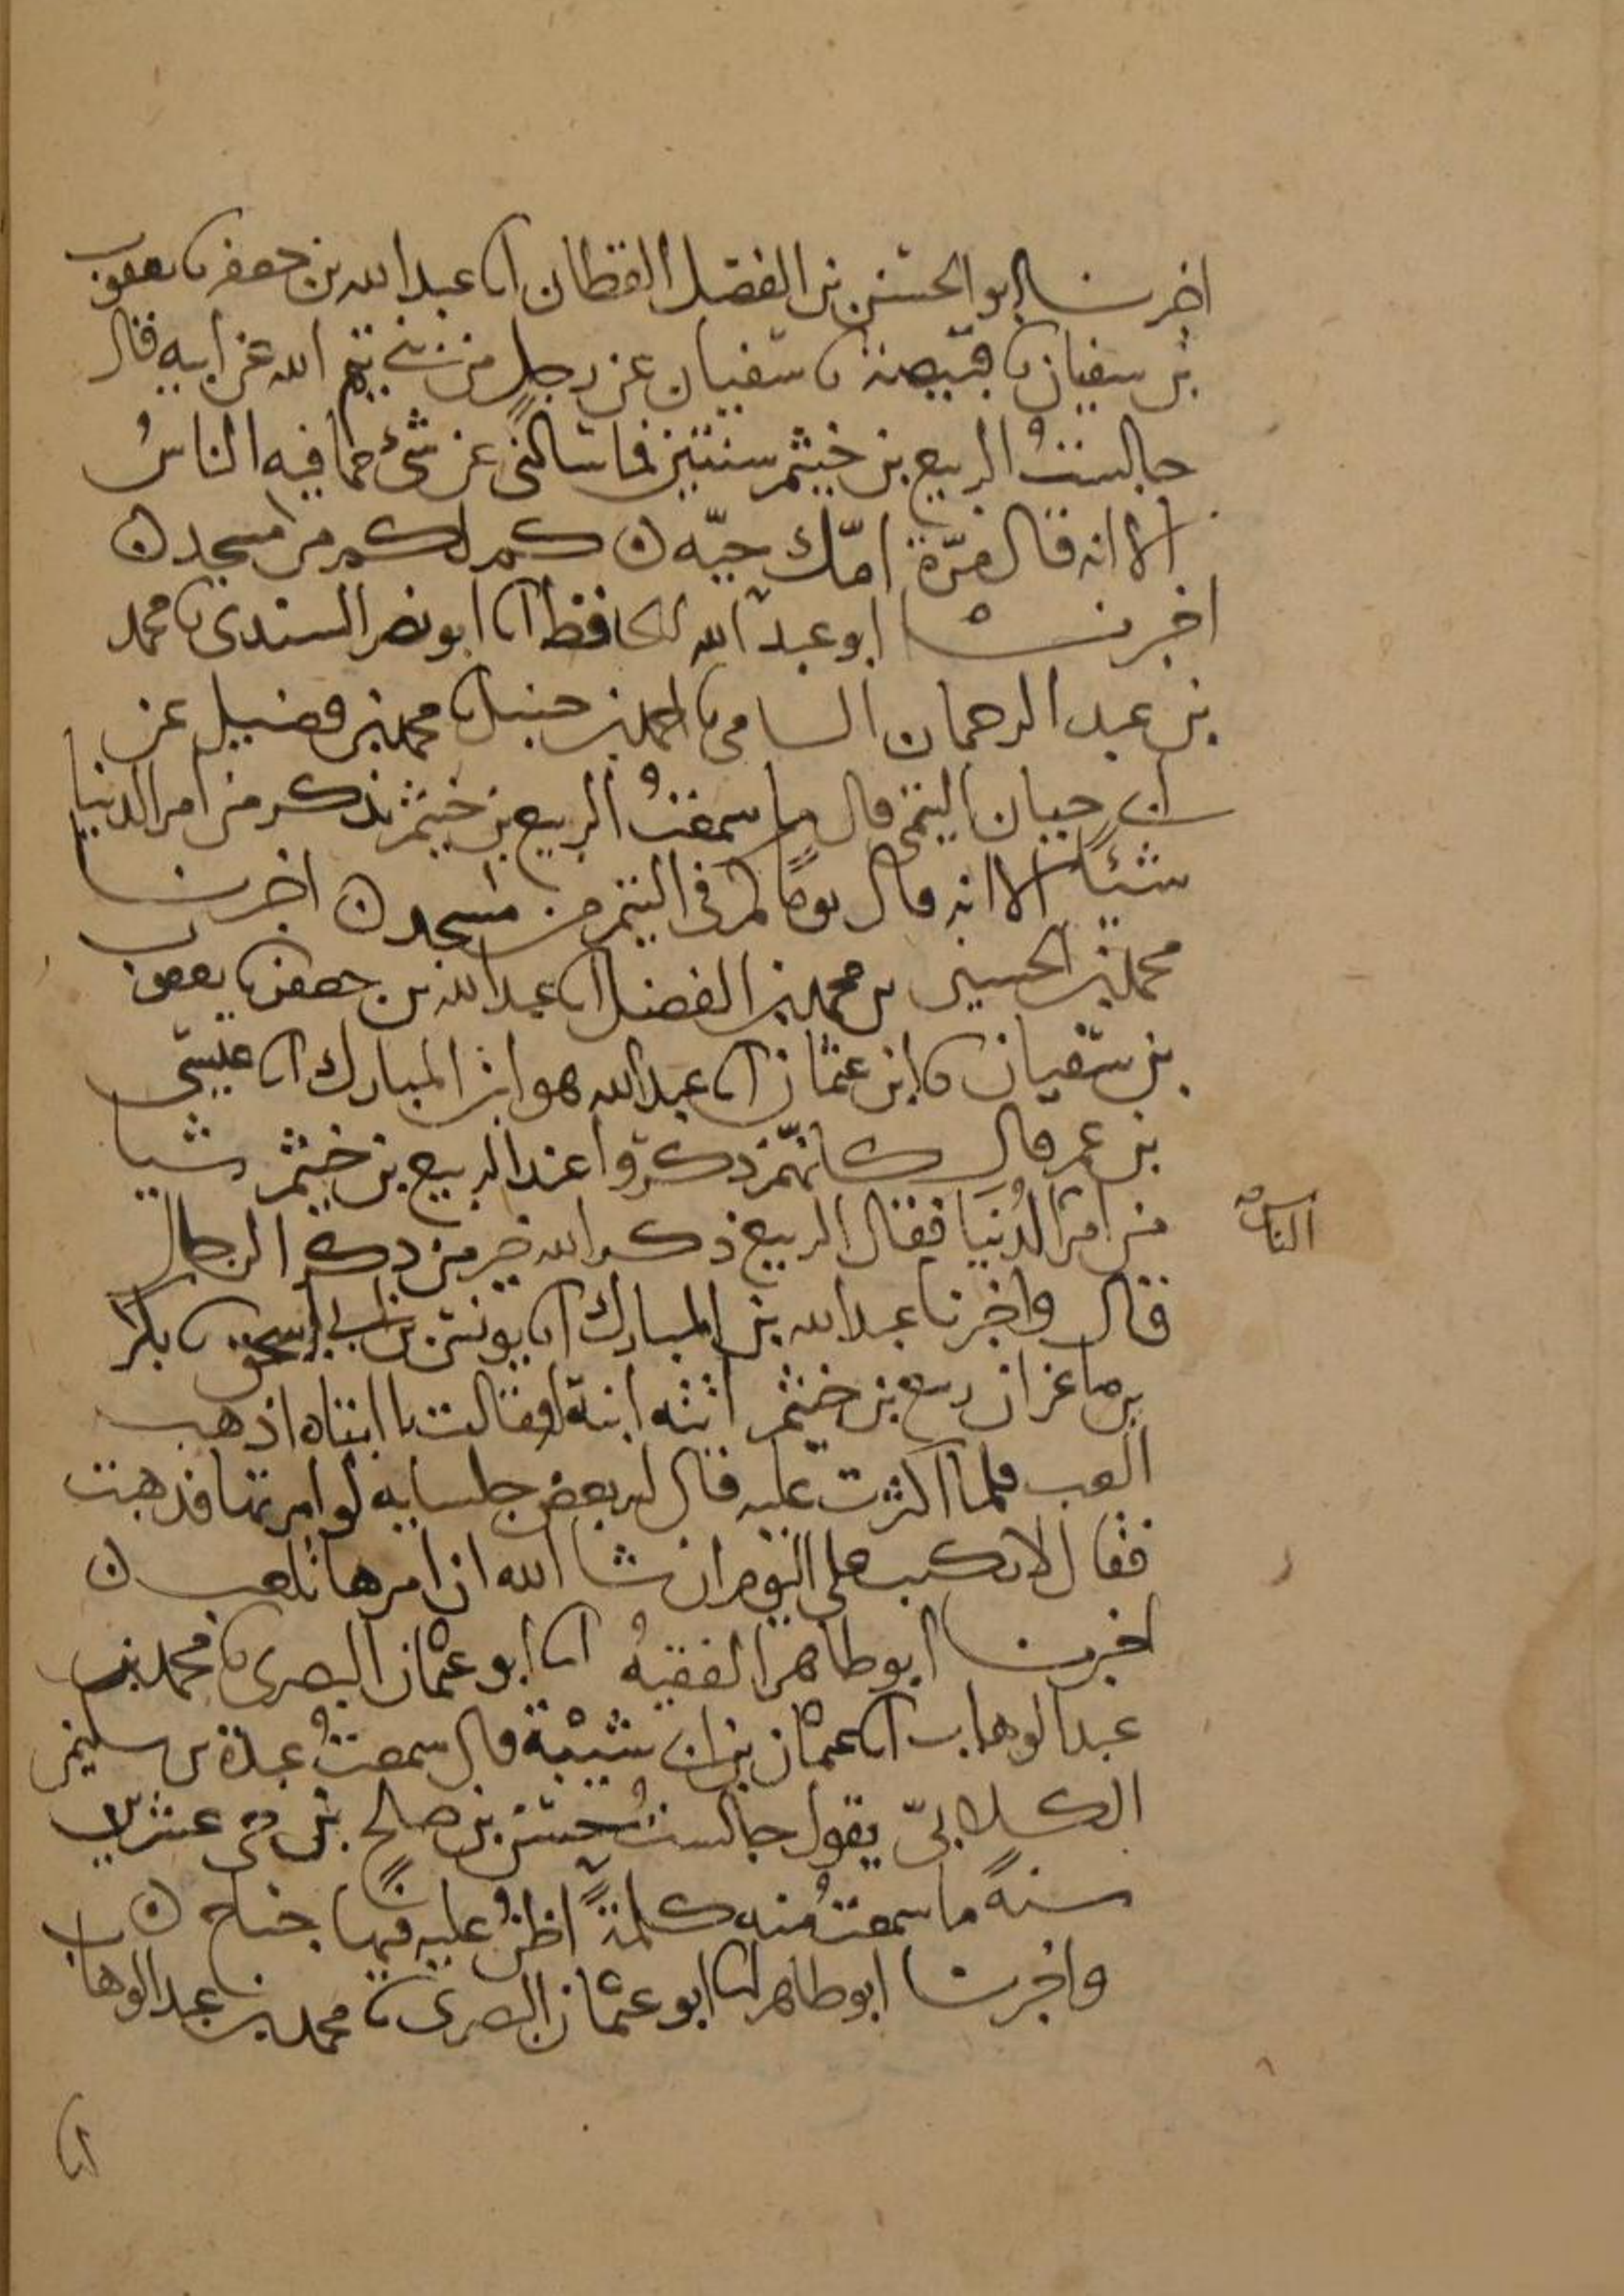 اخبرنا ابو الحسين بن الفضل القطان انا عبد الله بن جعفر نا يعقوب
بن سفيان نا قبيصة نا سفيان عن رجل من بني تيم الله عن ابيه قال
جالست الربيع بن خيثم سنتين فما سالني عن شئ مما فيه الناسُ
الا انه قال مرّة امّك حيّه كم لكم من مسجد
اخبرنا ابو عبد الله الحافظ انا ابو نصر السندي نا محمد
بن عبد الرحمان السامي نا احمد بن حنبل نا محمد بن فضيل عن
ابي حيان التيمي قال ما سمعتُ الربيع بن خيثم يذكر من امر الدنيا
شيئا الا انه قال يوما كم في التيم من مسجد اخبرنا
محمد بن الحسين بن محمد بن الفضل انا عبد الله بن جعفر نا يعقوب
بن سفيان نا ابن عثمان انا عبد الله هو ابن المبارك انا عيسى
بن عمر قال كانهم ذكروا عند الربيع بن خيثم شيا
من امر الدُنيا فقال الربيع ذكر الله خير من ذكر الرجال
الناس
قال واخبرنا عبد الله بن المبارك انا يونس بن ابي اسحق نا بكر
بن ماعز ان ربيع بن خيثم اتته ابنة له فقالت يا ابتاه اذهب
العب فلما اكثرت عليه قال له بعض جلسايه لو امرتها فذهبت
فقال لا يكتب علي اليوم ان شا الله ان امرها تلعب
اخبرنا ابو طاهر الفقيهُ انا ابو عثمان البصري نا محمد بن
عبد الوهاب انا عثمان بن ابي شيبة قال سمعتُ عبدة بن سليمن
الكلابيّ يقول جالستُ حسن بن صالح بن حي عشرين
سنةً ما سمعتُ منه كلمةً اظنُّ عليه فيها جناح
واخبرنا ابو طاهر انا ابو عثمان البصري نا محمد بن عبد الوهاب
انا